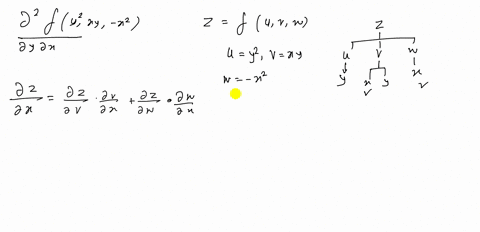 ∂² f(y², xy, -x²)
∂y ∂x
Z = f(u, v, w)
u = y², v = xy
w = -x²
∂z/∂x = ∂z/∂v · ∂v/∂x + ∂z/∂w · ∂w/∂x
Z
u v w
y x y x
v v